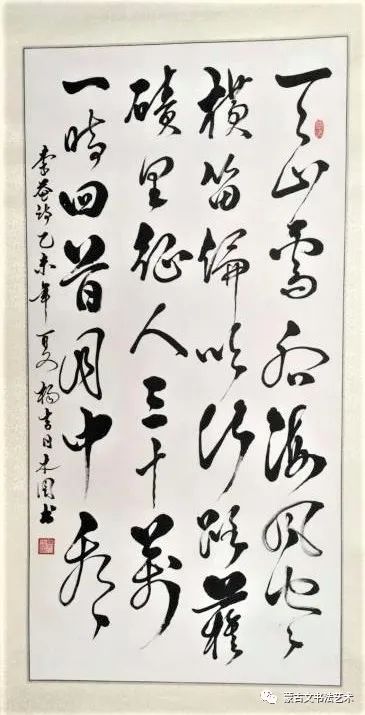 天山雪后海风寒
横笛偏吹行路難
磧里征人三十萬
一時回首月中看
李益诗乙未年夏楊吉日木图书
蒙古文书法艺术